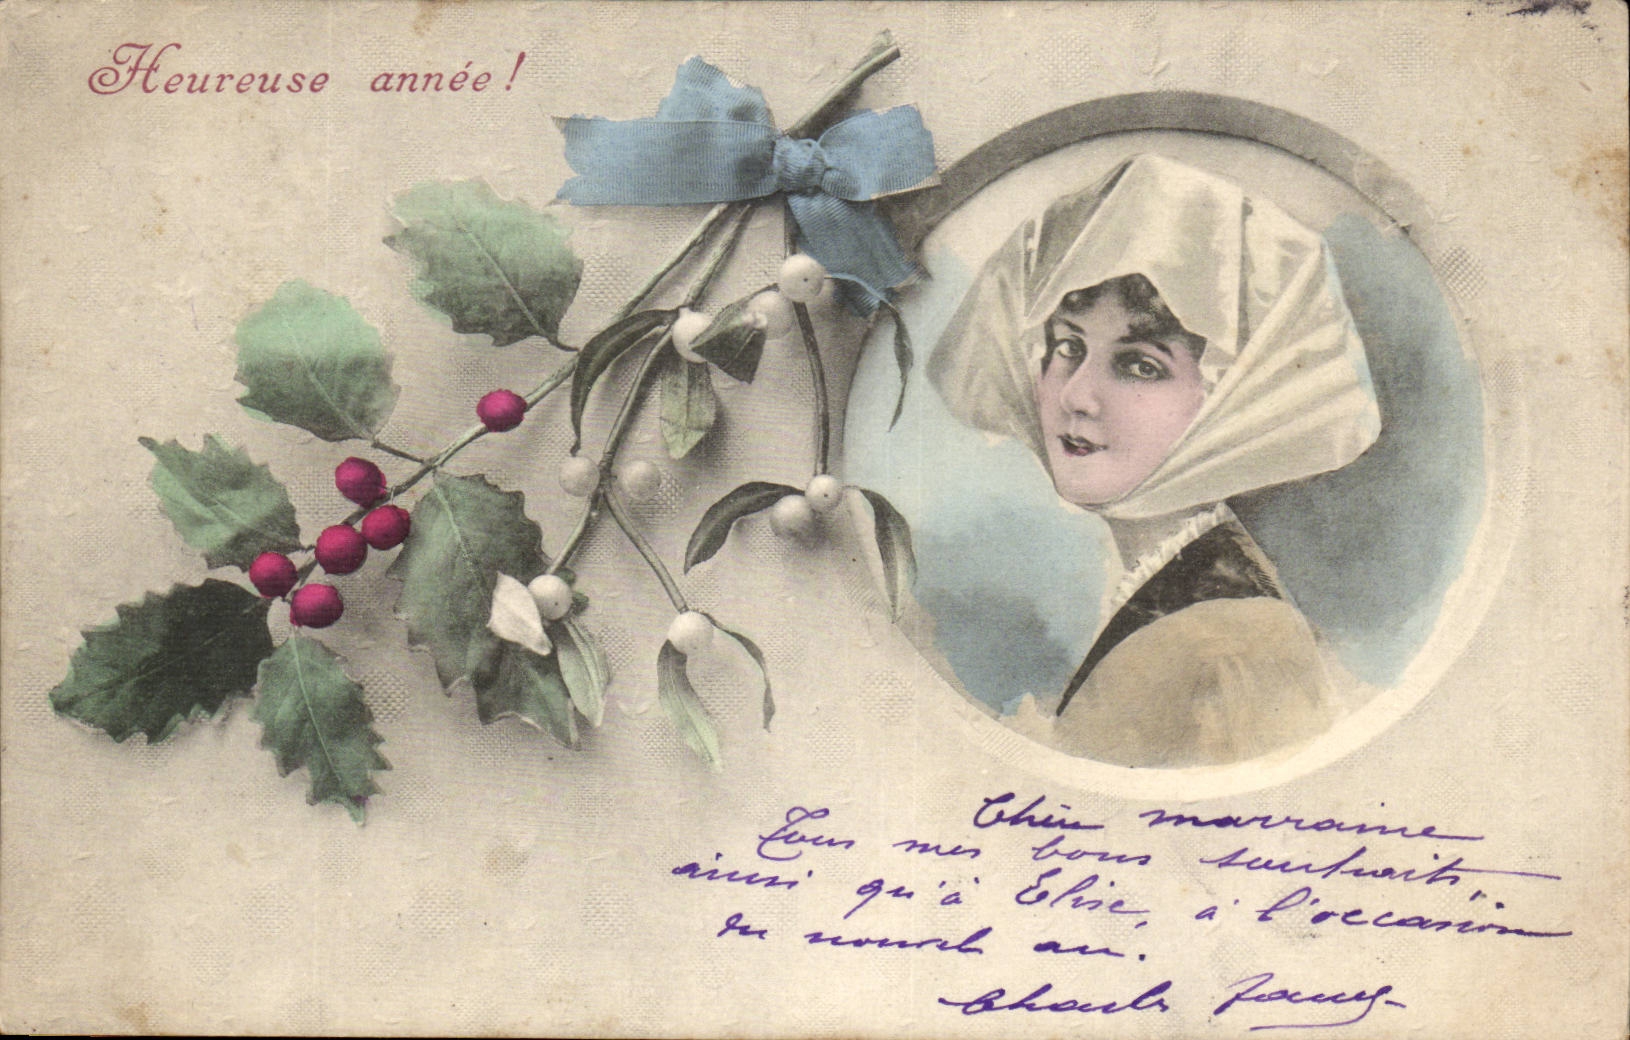 Heureuse année !
Chère marraine
Tous mes bons souhaits,
ainsi qu'à Elise, à l'occasion
du nouvel an.
Charles